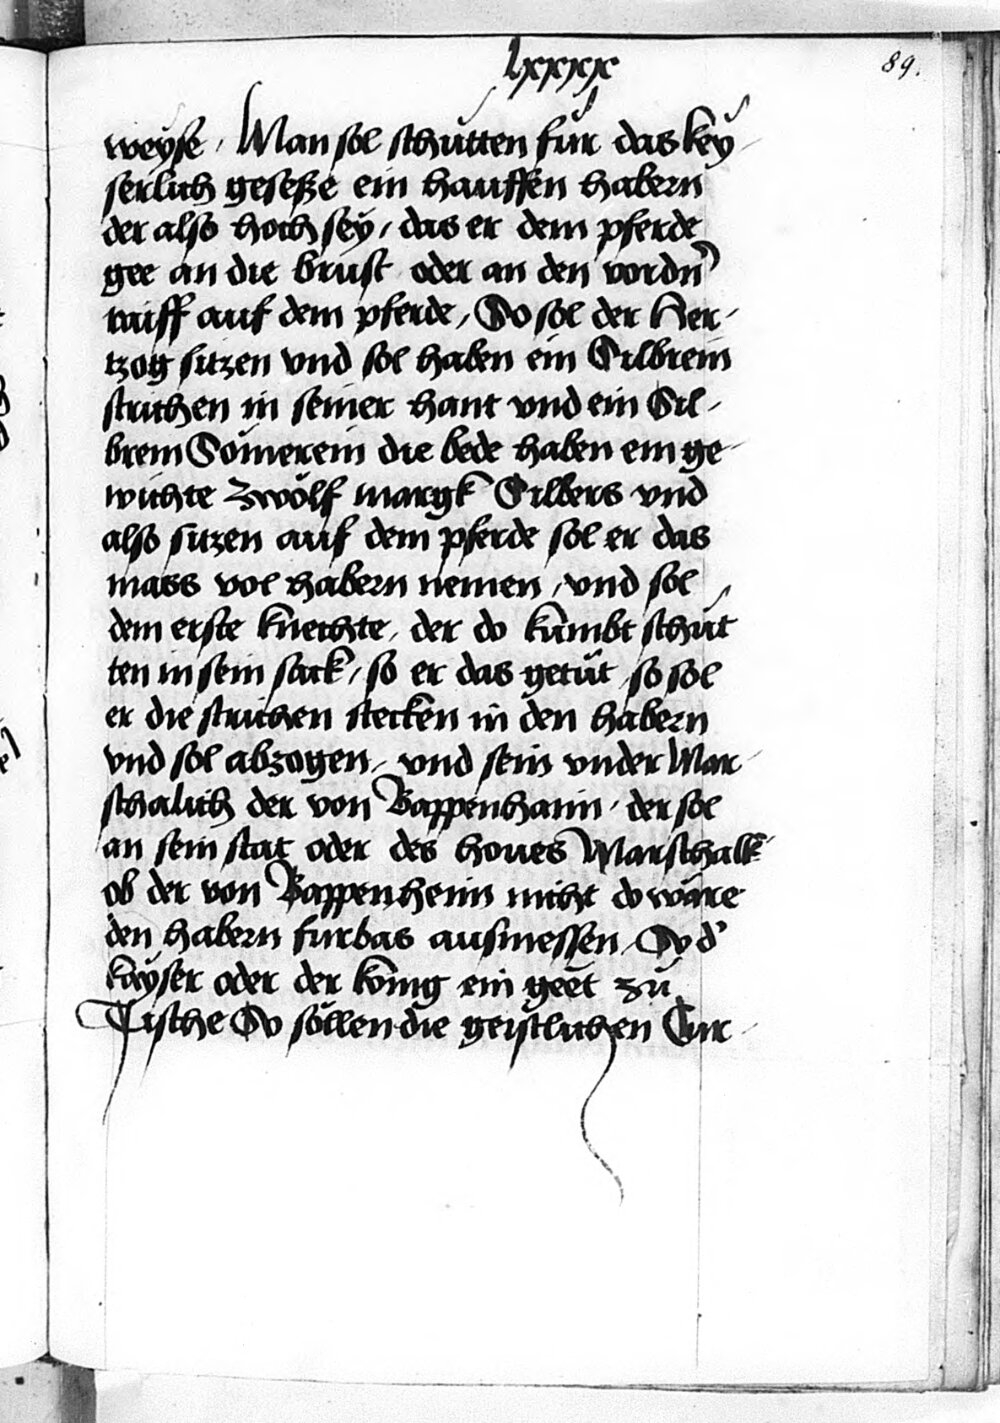 lxxxx
89.
weyse / Man sol schütten für das key
serlich gesesze ein hauffen habern
der also hoch sey / das er dem pferde
gee an die brust oder an den vordn̄
raiff auf dem pferde / So sol der Her-
tzog sitzen vnd sol haben ein Silbrein
strichen in seiner hant vnd ein Sil-
brem Sömerein die bede haben ein ge-
wichte zwölf margk Silbers vnd
also sitzen auf dem pferde sol er das
mass vol habern nemen / vnd sol
dem erste knechte / der do kumbt schüt
ten in sein sack / so er das getüt so sol
er die strichen stecken in den habern
vnd sol abzogen / vnd sein vnder Mar-
schalich der von Bappenhaim / der sol
an sein stat oder des houes Marschalk
ob der von Bappenheim nicht do wäre
den habern furbas ausmessen / So d'
kayser oder der konig ein geet zu
Tische So söllen die geistlichen Cur-